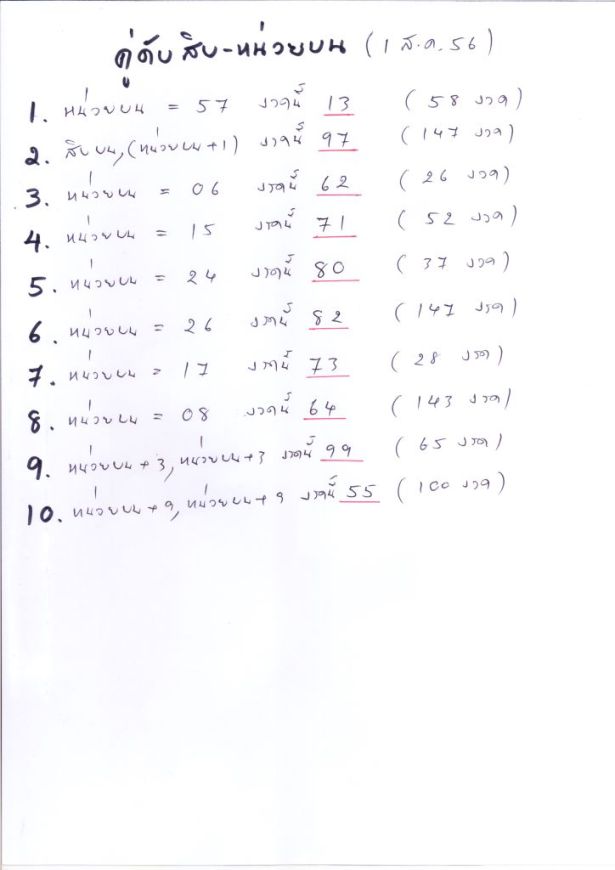 คู่ดับสิบ-หน่วยบน (1 ส.ค.56)
1. หน่วยบน = 57 งวดนี้ 13 (58 งวด)
2. สิบบน,(หน่วยบน+1) งวดนี้ 97 (147 งวด)
3. หน่วยบน = 06 งวดนี้ 62 (26 งวด)
4. หน่วยบน = 15 งวดนี้ 71 (52 งวด)
5. หน่วยบน = 24 งวดนี้ 80 (37 งวด)
6. หน่วยบน = 26 งวดนี้ 82 (147 งวด)
7. หน่วยบน = 17 งวดนี้ 73 (28 งวด)
8. หน่วยบน = 08 งวดนี้ 64 (143 งวด)
9. หน่วยบน+3,หน่วยบน+3 งวดนี้ 99 (65 งวด)
10. หน่วยบน+9,หน่วยบน+9 งวดนี้ 55 (100 งวด)